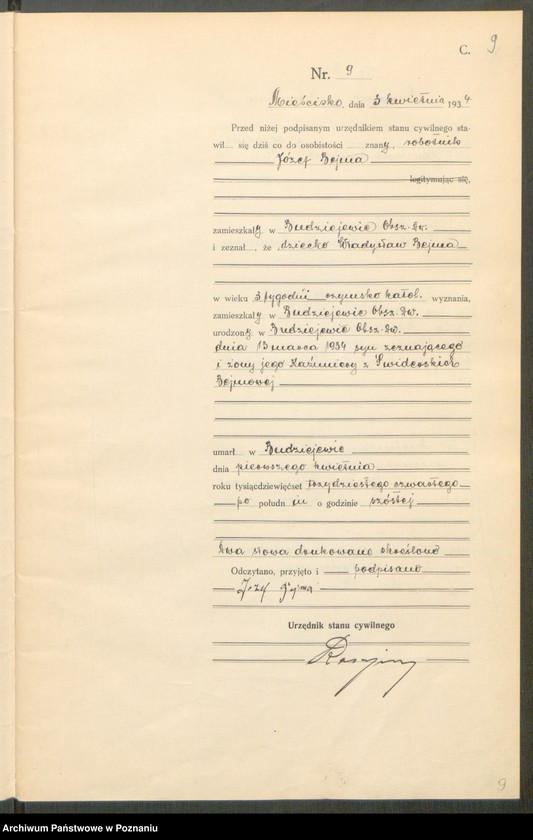 C. 9
Nr. 9
Mieścisko, dnia 3 kwietnia 1934
Przed niżej podpisanym urzędnikiem stanu cywilnego sta-
wił się dziś co do osobistości znany, robotnik
Józef Bejma
legitymując się,
zamieszkały w Budziejewie Obsz. Dw.
i zeznał, że dziecko Władysław Bejma
w wieku 3 tygodni rzymsko katol. wyznania,
zamieszkały w Budziejewie Obsz. Dw.
urodzony w Budziejewie Obsz. Dw.
dnia 13 marca 1934 syn zeznającego
i żony jego Kaźmiery z Świderskich
Bejmowej
umarł w Budziejewie
dnia pierwszego kwietnia
roku tysiącdziewięćset trzydziestego czwartego
po połudn iu o godzinie szóstej
Dwa słowa drukowane skreślono
Odczytano, przyjęto i podpisano
Józef Bejma
Urzędnik stanu cywilnego
9
Archiwum Państwowe w Poznaniu